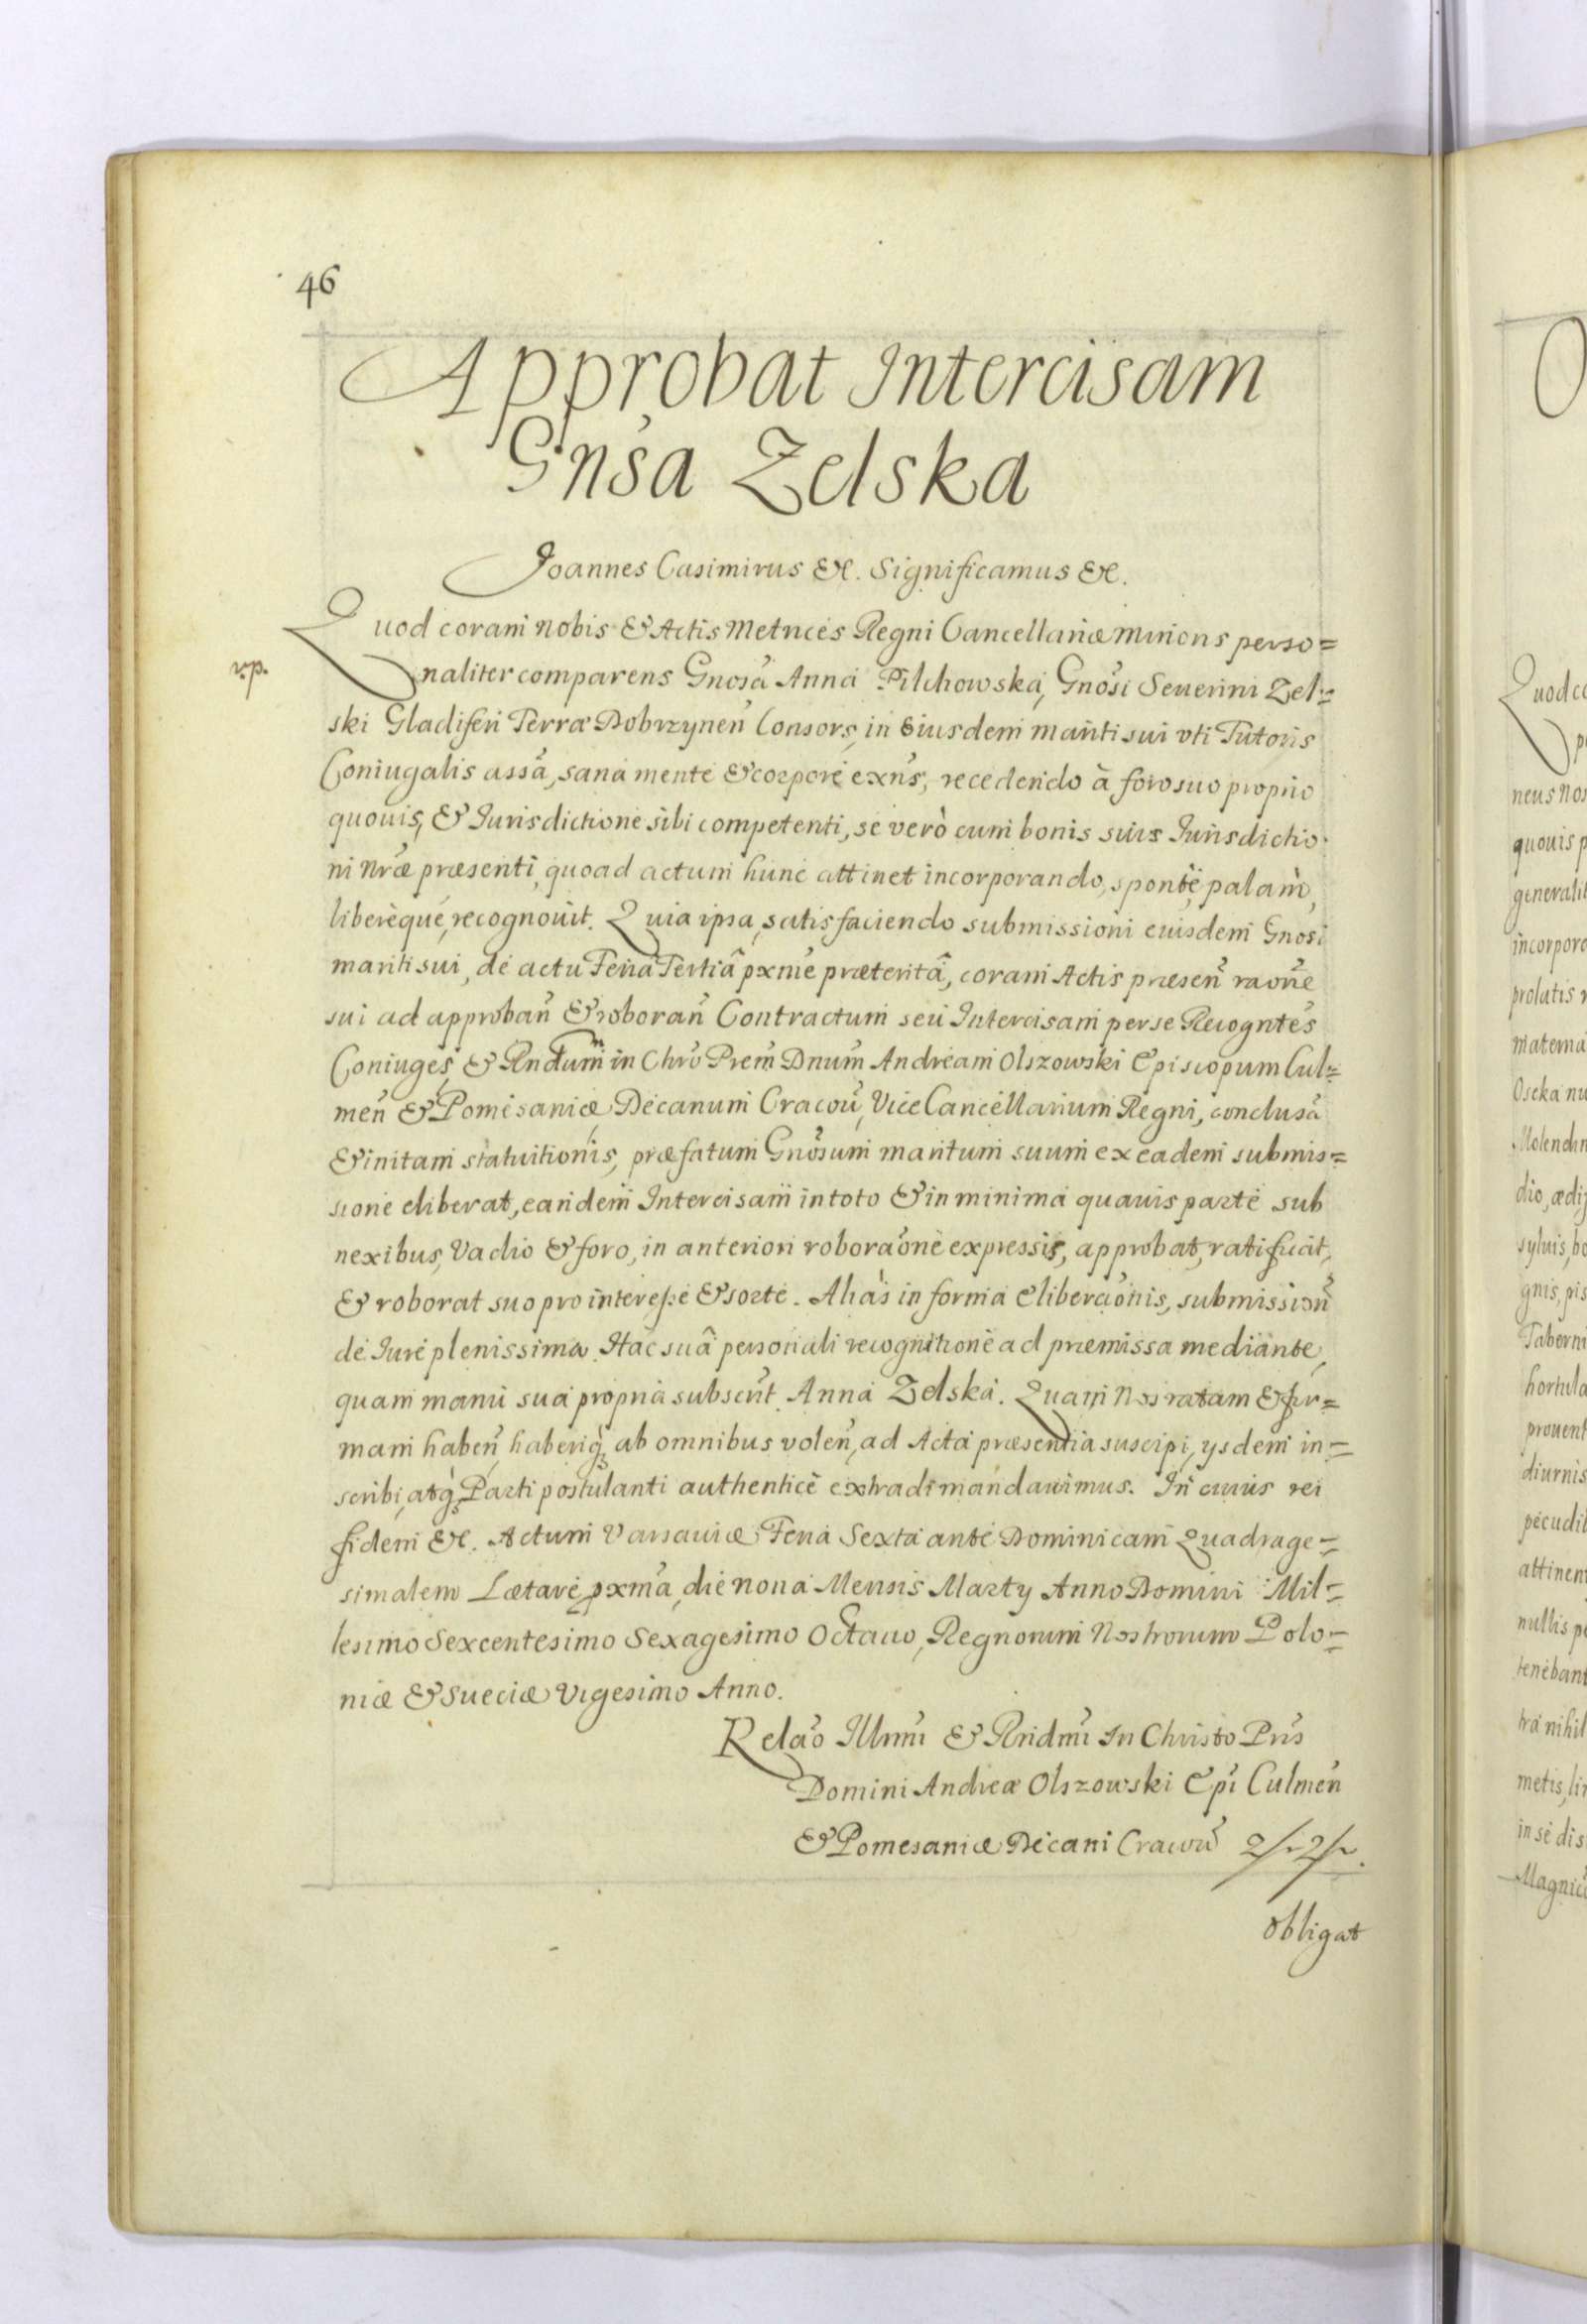 46
Approbat Intercisam
Gnsa Zelska
Joannes Casimirus &c. Significamus &c.
Quod coram nobis & Actis Metrices Regni Cancellariæ minoris perso=
r.p.
naliter comparens Gnosa Anna Pilchowska, Gnosi Seuerini Zel=
ski Gladiferi Terræ Dobrzynen Consors, in Eiusdem mariti sui vti Tutoris
Coniugalis assa, sana mente & corpore exns, recedendo à foro suo proprio
quouis, & Iurisdictione sibi competenti, se verò cum bonis suis Iurisdictio
ni nræ præsenti, quoad actum hunc attinet incorporando, sponte, palam,
liberèque, recognouit. Quia ipsa, satisfaciendo submissioni eiusdem Gnosi
mariti sui, de actu Feria Tertiâ pxme præteritâ, coram Actis præsen raone
sui ad approban & roboran Contractum seu Intercisam per se Recogntes
Coniuges, & Rndum in Chro Prem Dnum Andream Olszowski Episcopum Cul=
men & Pomesaniæ, Decanum Cracou, Vice Cancellarium Regni, conclusa
& initam statuitionis, præfatum Gnosum maritum suum ex eadem submis=
sione eliberat, eandem Intercisam in toto & in minima quauis parte sub
nexibus, Vadio & foro, in anteriori roboraone expressis, approbat, ratificat,
& roborat suo pro interesse & sorte. Alias in forma eliberaonis, submission
de Iure plenissima. Hac suâ personali recognitione ad præmissa mediante,
quam manu sua propria subscrit. Anna Zelska. Quam Nos ratam & fir=
mam haben, haberiq, ab omnibus volen, ad Acta præsentia suscipi, ysdem in=
scribi, atq Parti postulanti authenticè extradi mandauimus. In cuius rei
fidem &c. Actum Varsauiæ Feria Sexta ante Dominicam Quadrage=
simalem Lætare pxma, die nona Mensis Marty Anno Domini Mil=
lesimo Sexcentesimo Sexagesimo Octauo, Regnorum Nostrorum Polo=
niæ & Sueciæ Vigesimo Anno.
Relao Illmi & Rndmi In Christo Pris
Domini Andreæ Olszowski Epi Culmen
& Pomesaniæ Decani Cracou
obligat